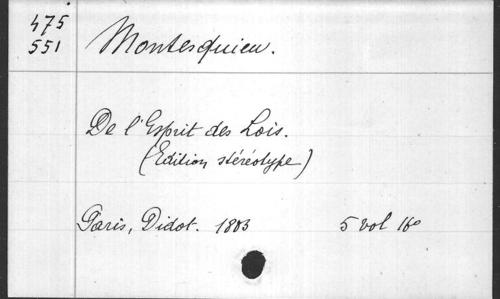 475
551
Montesquieu.
De l'Esprit des Lois.
(Edition stéréotype)
Paris, Didot. 1803 5 vol 16°